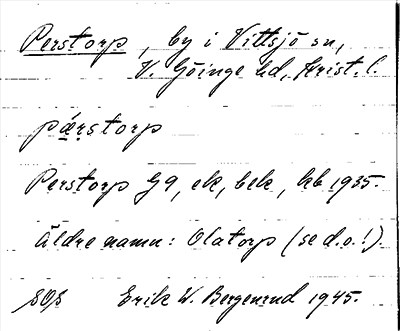 Perstorp, by i Vittsjö sn,
V. Göinge hd, Krist. l.
pǽrstorp
Perstorp G9, ek, bek, hb 1935.
Äldre namn: Olatorp (se d.o.!).
Erik W. Bergenrud 1945.